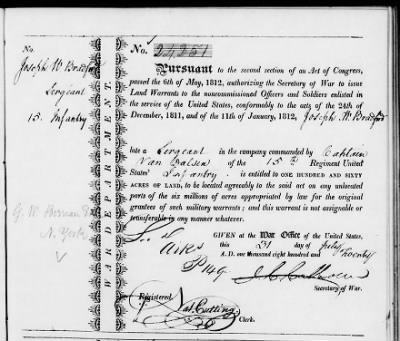 No.
Joseph W. Bradford
Sergeant
15. Infantry
N. York
WAR DEPARTMENT.
No. 24,251
Pursuant to the second section of an Act of Congress,
passed the 6th of May, 1812, authorizing the Secretary of War to issue
Land Warrants to the noncommissioned Officers and Soldiers enlisted in
the service of the United States, conformably to the acts of the 24th of
December, 1811, and of the 11th of January, 1812, Joseph W. Bradford
late a Sergeant in the company commanded by Captain
Van Dalsen of the 15th Regiment United
States' Infantry is entitled to ONE HUNDRED AND SIXTY
ACRES OF LAND, to be located agreeably to the said act on any unlocated
parts of the six millions of acres appropriated by law for the original
grantees of such military warrants; and this warrant is not assignable or
transferable in any manner whatever.
GIVEN at the War Office of the United States,
this 31 day of July
A. D. one thousand eight hundred and twenty
Ark.
P 149
J. C. Calhoun
Secretary of War.
Registered
Nat. Cutting
Clerk.